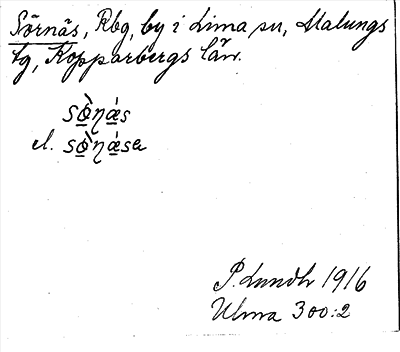 Sörnäs, Rbg, by i Lima sn, Malungs
tg, Kopparbergs län.
sö̀ɳás
el. sö̀ɳása
P. Lundh 1916
Ulma 300:2